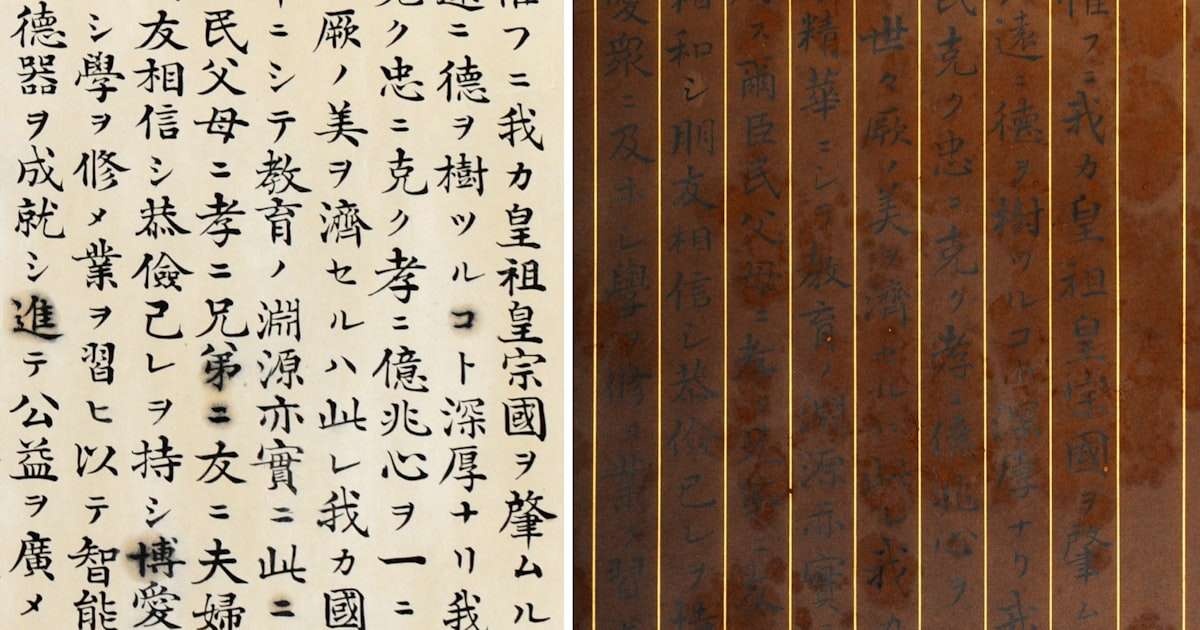 惟フニ我カ皇祖皇宗國ヲ肇ムル
遠ニ德ヲ樹ツルコト深厚ナリ我
克ク忠ニ克ク孝ニ億兆心ヲ一ニ
厥ノ美ヲ濟セルハ此レ我カ國
ニシテ教育ノ淵源亦實ニ此ニ
民父母ニ孝ニ兄弟ニ友ニ夫婦
友相信シ恭儉己レヲ持シ博愛
シ學ヲ修メ業ヲ習ヒ以テ智能
德器ヲ成就シ進テ公益ヲ廣メ
惟フニ我カ皇祖皇宗國ヲ肇ム
遠ニ德ヲ樹ツルコト深厚ナリ我
民克ク忠ニ克ク孝ニ億兆心ヲ
世々厥ノ美ヲ濟セルハ此レ我カ
精華ニシテ教育ノ淵源亦實ニ
ス爾臣民父母ニ孝ニ兄弟ニ友
相和シ朋友相信シ恭儉己レヲ持
愛衆ニ及ホシ學ヲ修メ業ヲ習ヒ